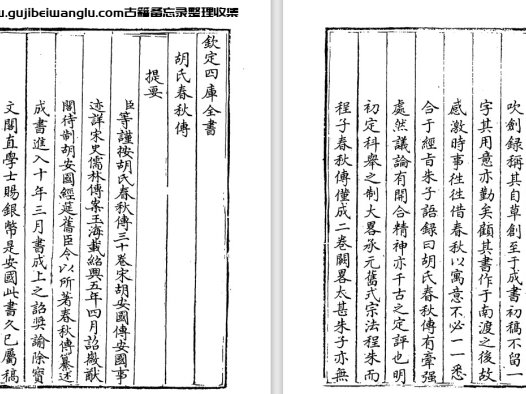 w.gujibeiwanglu.com古籍备忘录整理收集
欽定四庫全書
胡氏春秋傳
提要
臣等謹按胡氏春秋傳三十卷宋胡安國傳安國事
迹詳宋史儒林傳案玉海載紹興五年四月詔徽猷
閣待制胡安國經筵舊臣令以所著春秋傳纂述
成書進入十年三月書成上之詔奬諭除寳
文閣直學士賜銀幣是安國此書久已屬稿
吹劍録稱其自草創至于成書初稿不留一
字其用意亦勤矣顧其書作于南渡之後故
感激時事往往借春秋以寓意不必一一悉
合于經旨朱子語録曰胡氏春秋傳有牽強
處然議論有開合精神亦千古之定評也明
初定科舉之制大略承元舊式宗法程朱而
程子春秋傳僅成二卷闕畧太甚朱子亦無